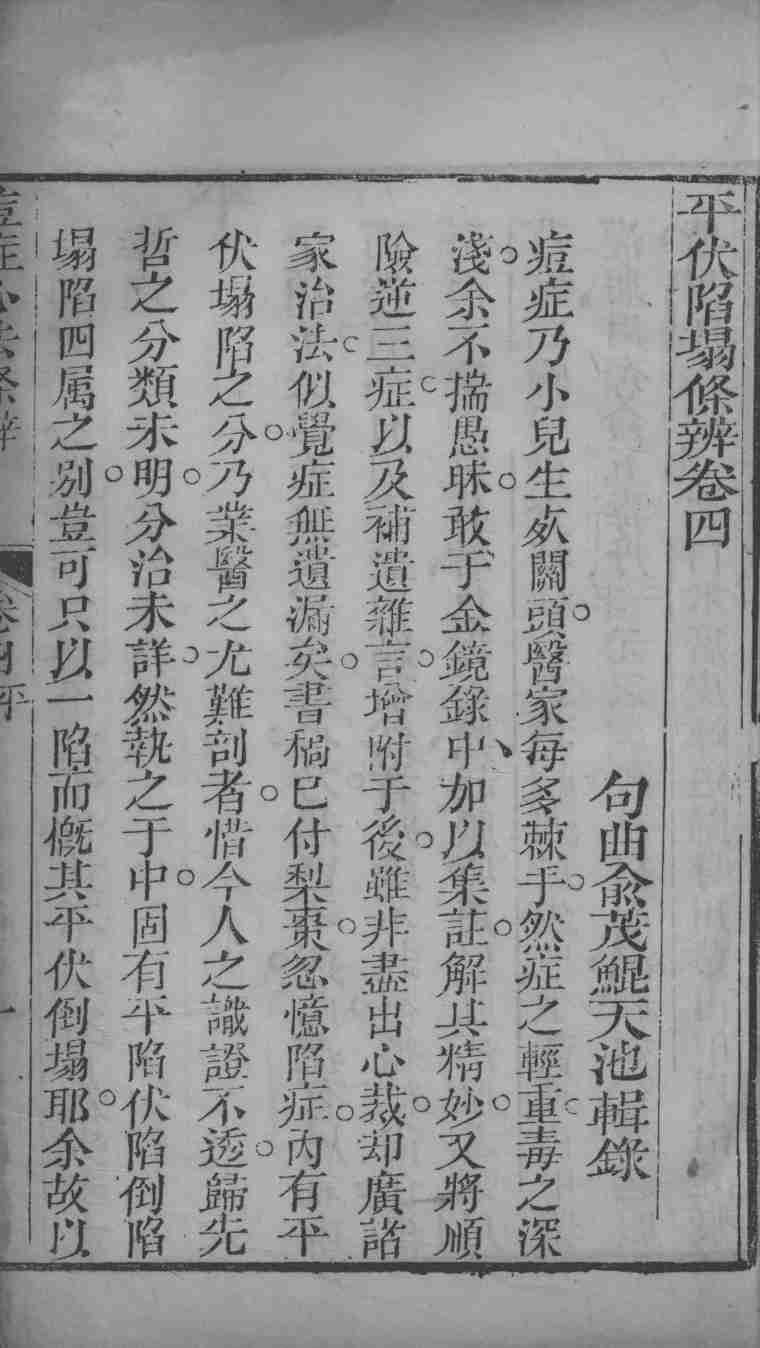 平伏陷塌條辨卷四
句曲俞茂鯤天池輯錄
痘症乃小兒生死關頭醫家每多棘手然症之輕重毒之深
淺余不揣愚昧敢于金鏡錄中加以集註解其精妙又將順
險逆三症以及補遺雜言增附于後雖非盡出心裁却廣諸
家治法似覺症無遺漏矣書稿已付梨棗忽憶陷症內有平
伏塌陷之分乃業醫之尤難剖者惜今人之識證不透歸先
哲之分類未明分治未詳然執之于中固有平陷伏陷倒陷
塌陷四属之别豈可只以一陷而慨其平伏倒塌耶余故以
痘症心法條辨 卷四平 一